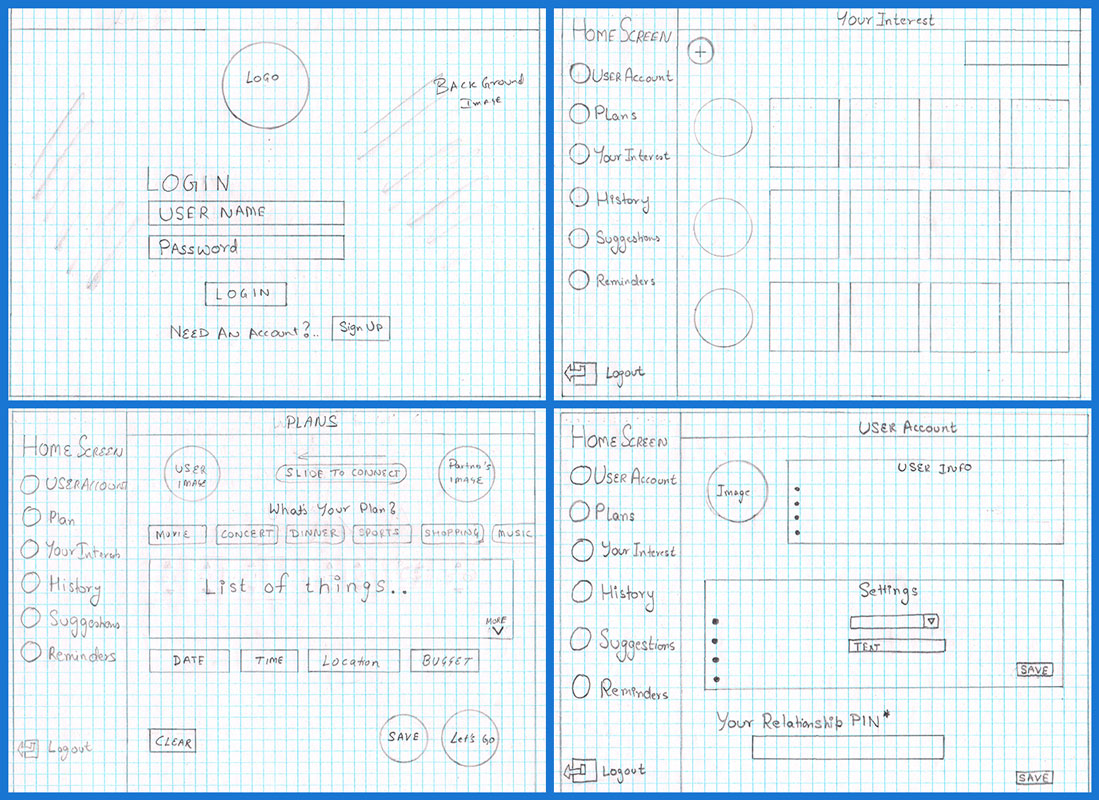 LOGO
BACK GROUND
IMAGE
LOGIN
USER NAME
PASSword
LOGIN
NEED AN Account?..
Sign Up
Your Interest
HOME SCREEN
USER Account
Plans
Your Interest
History
Suggestions
Reminders
Logout
PLANS
HOME SCREEN
USER Account
Plan
Your Interest
History
Suggestions
Reminders
Logout
USER
IMAGE
SLIDE TO CONNECT
Partner's
IMAGE
What's Your Plan?
MOVIE
CONCERT
DINNER
SPORTS
SHOPPING
MUSIC
List of things..
MORE
DATE
TIME
Location
BUGGET
CLEAR
SAVE
Let's Go
USER Account
HOME SCREEN
USER Account
Plans
Your Interest
History
Suggestions
Reminders
Logout
Image
USER INFO
Settings
TEXT
SAVE
Your Relationship PIN*
SAVE